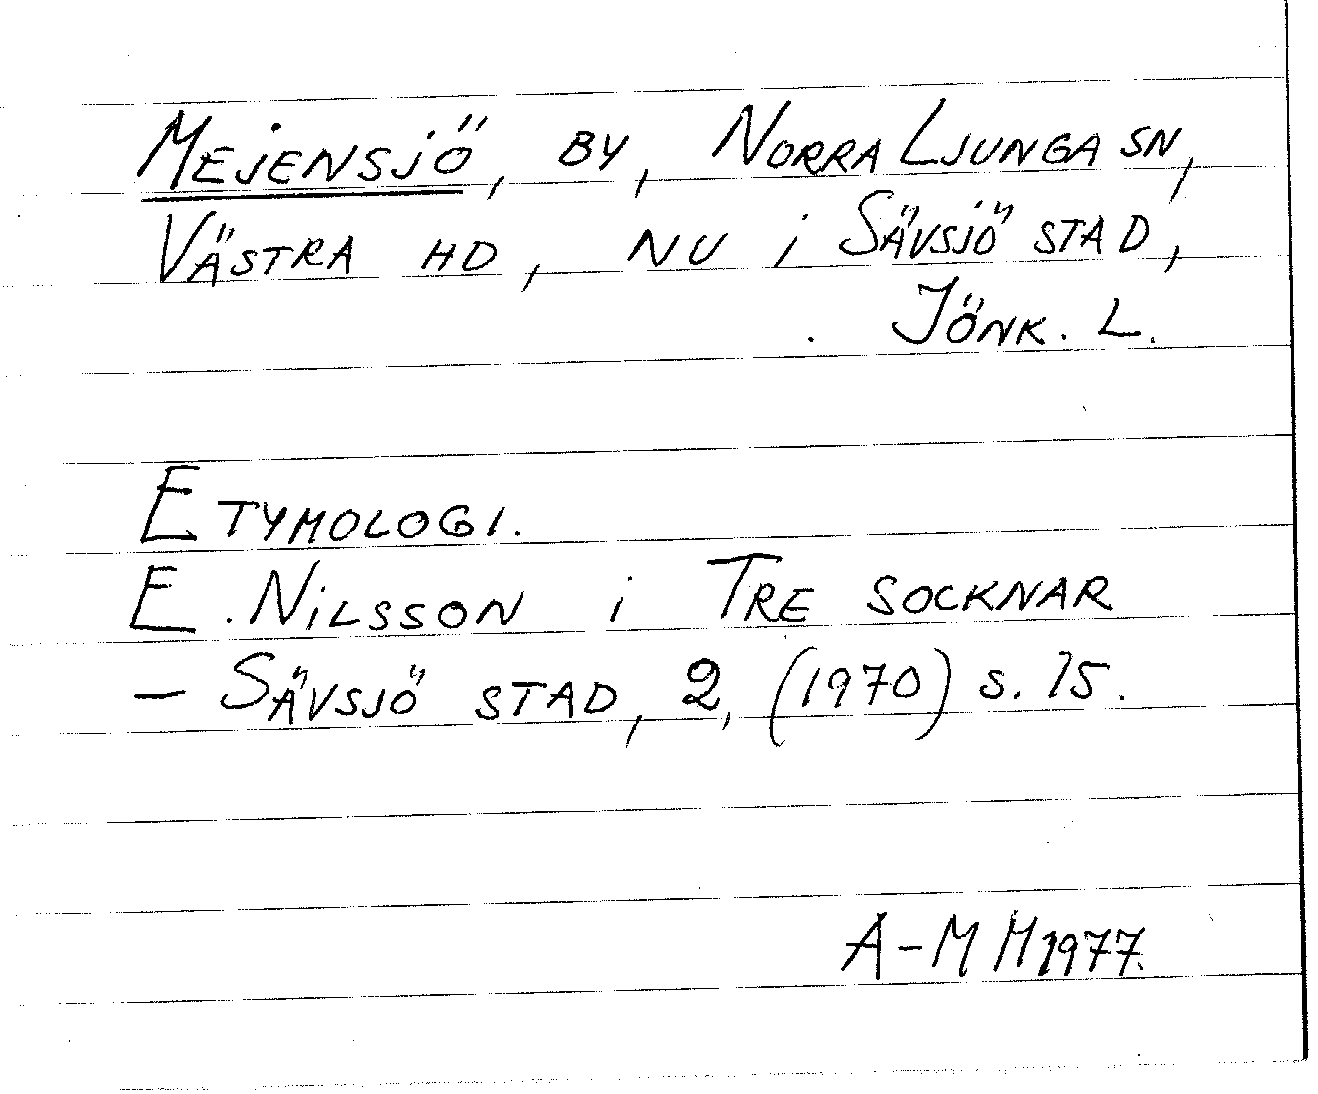 Mejensjö, by, Norra Ljunga sn,
Västra hd, nu i Sävsjö stad,
Jönk. L.
Etymologi.
E. Nilsson i Tre socknar
– Sävsjö stad, 2, (1970) s. 15.
A-M H 1977.